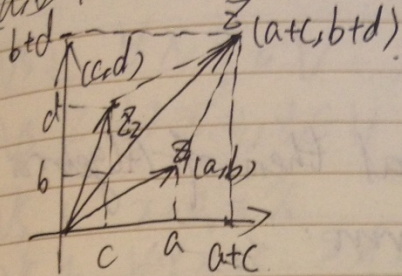 Z
b+d (a+c, b+d)
(c,d)
d
Z₂
Z₁
b (a,b)
c a a+c